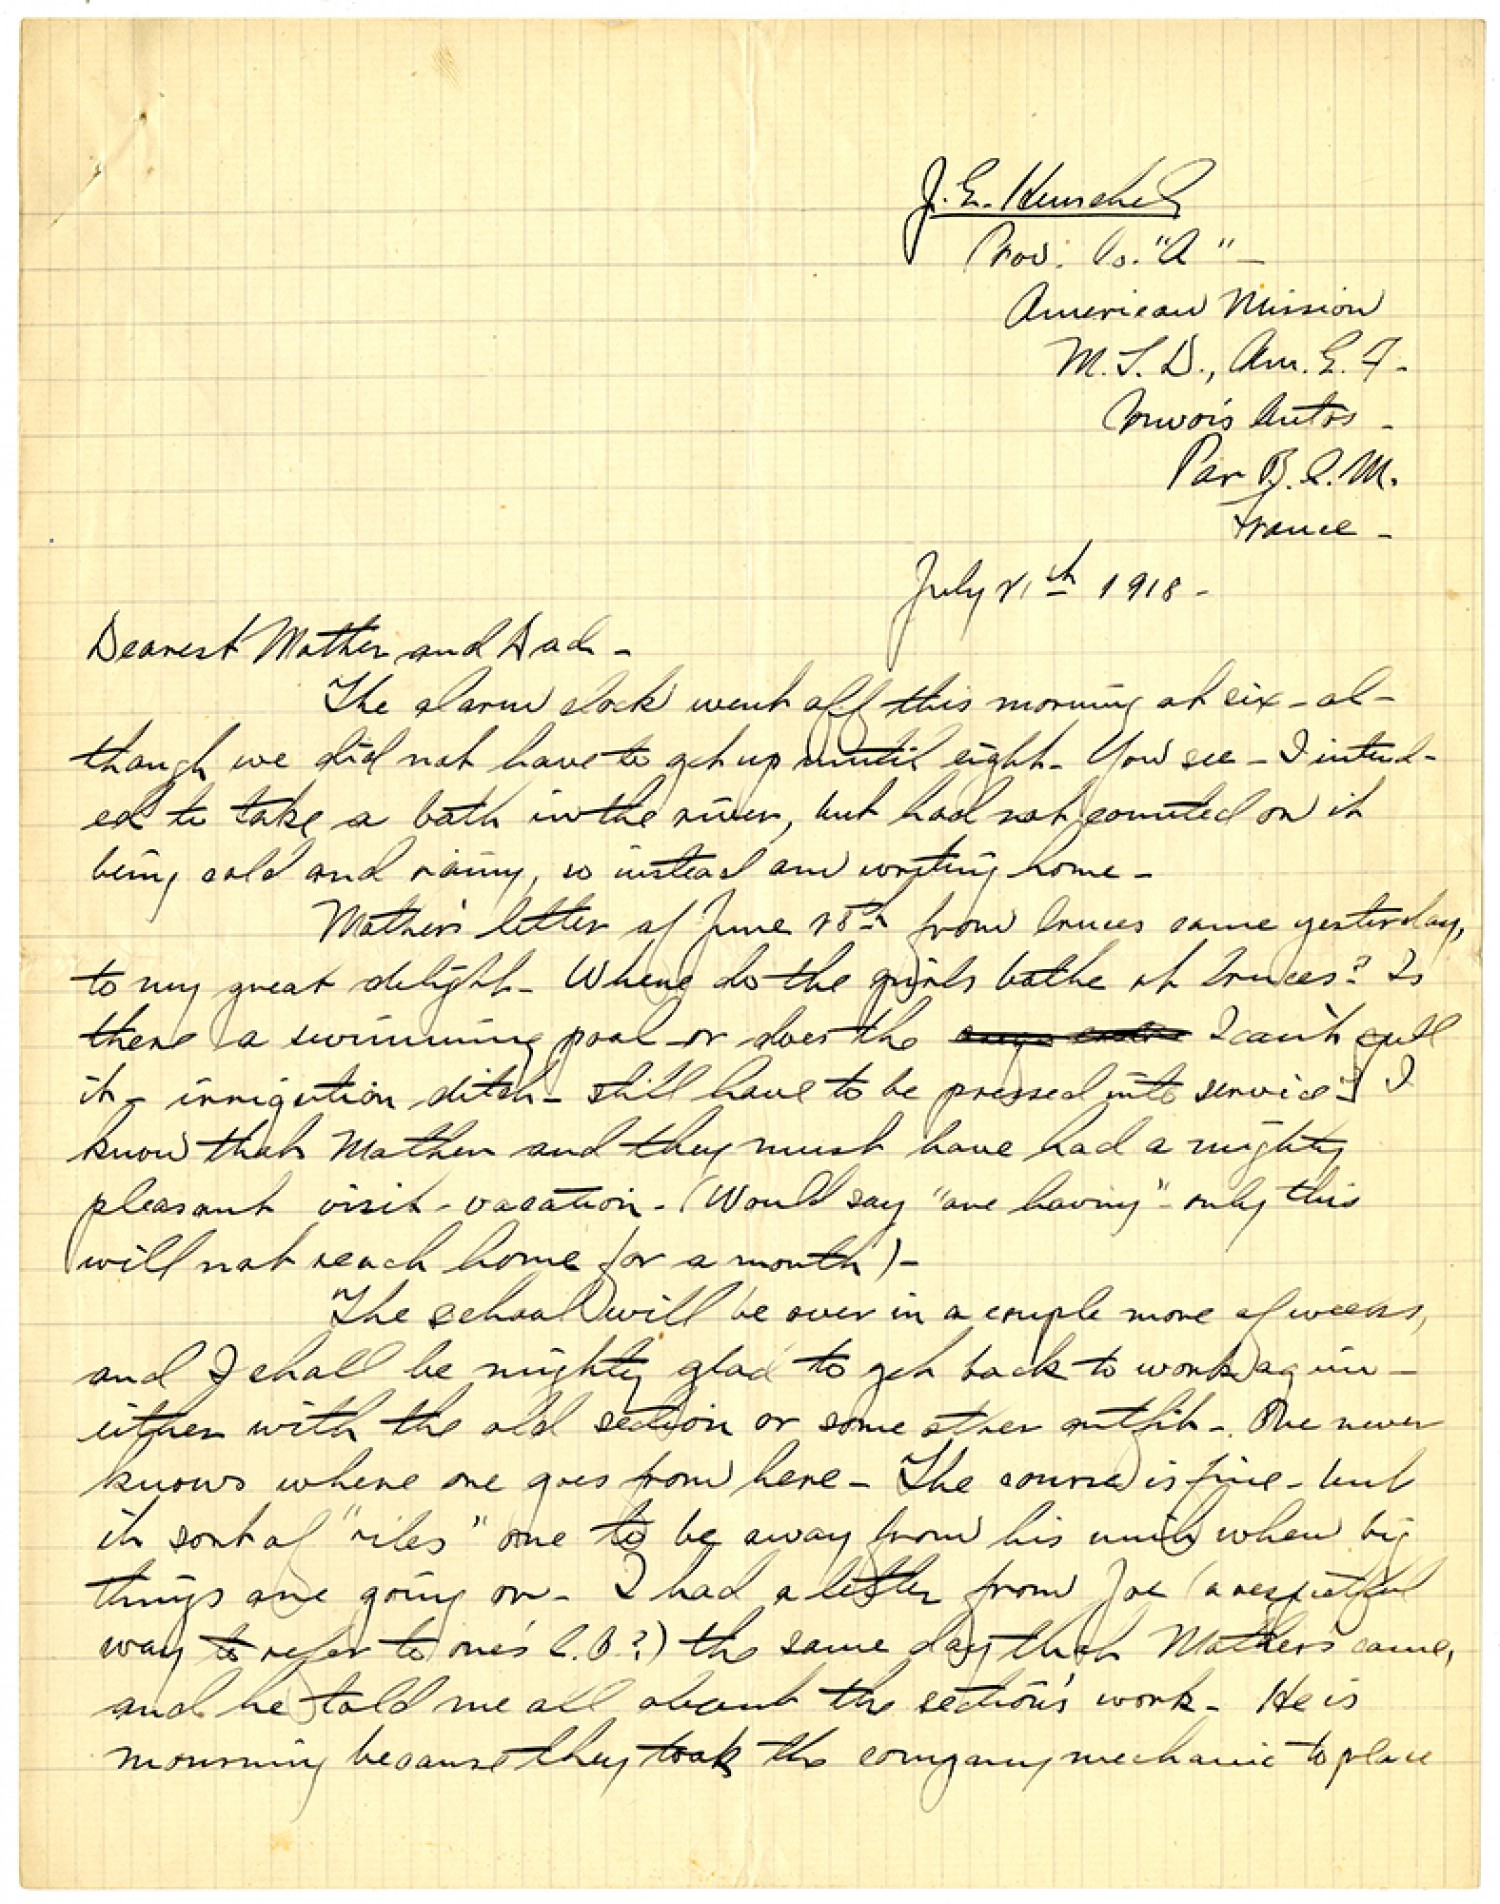 J. E. Henschel
Prov. Co. "A" –
American Mission
M. T. D., Am. E. F –
Convois Autos –
Par B. C. M.
France –
July 21th 1918 –
Dearest Mother and Dad –
The alarm clock went off this morning at six – al-
though we did not have to get up until eight – You see – I intend-
ed to take a bath in the river, but had not counted on it
being cold and rainy, so instead am writing home –
Mother's letter of June 28th from came yesterday,
to my great delight – Where do the girls bathe at ? Is
there a swimming pool – or does the I can't spell
it – irrigation ditch – still have to be pressed into service? I
know that Mother and they must have had a mighty
pleasant visit – vacation – (Would say "are having" – only this
will not reach home for a month) –
The school will be over in a couple more of weeks,
and I shall be mighty glad to get back to work again –
either with the old section or some other outfit –. One never
knows where one goes from here – The course is fine – but
it sort of "riles" one to be away from his unit when big
things are going on – I had a letter from Joe (a respectful
way to refer to one's C. O.?) the same day that Mother's came,
and he told me all about the section's work – He is
mourning because they took the company mechanic to place